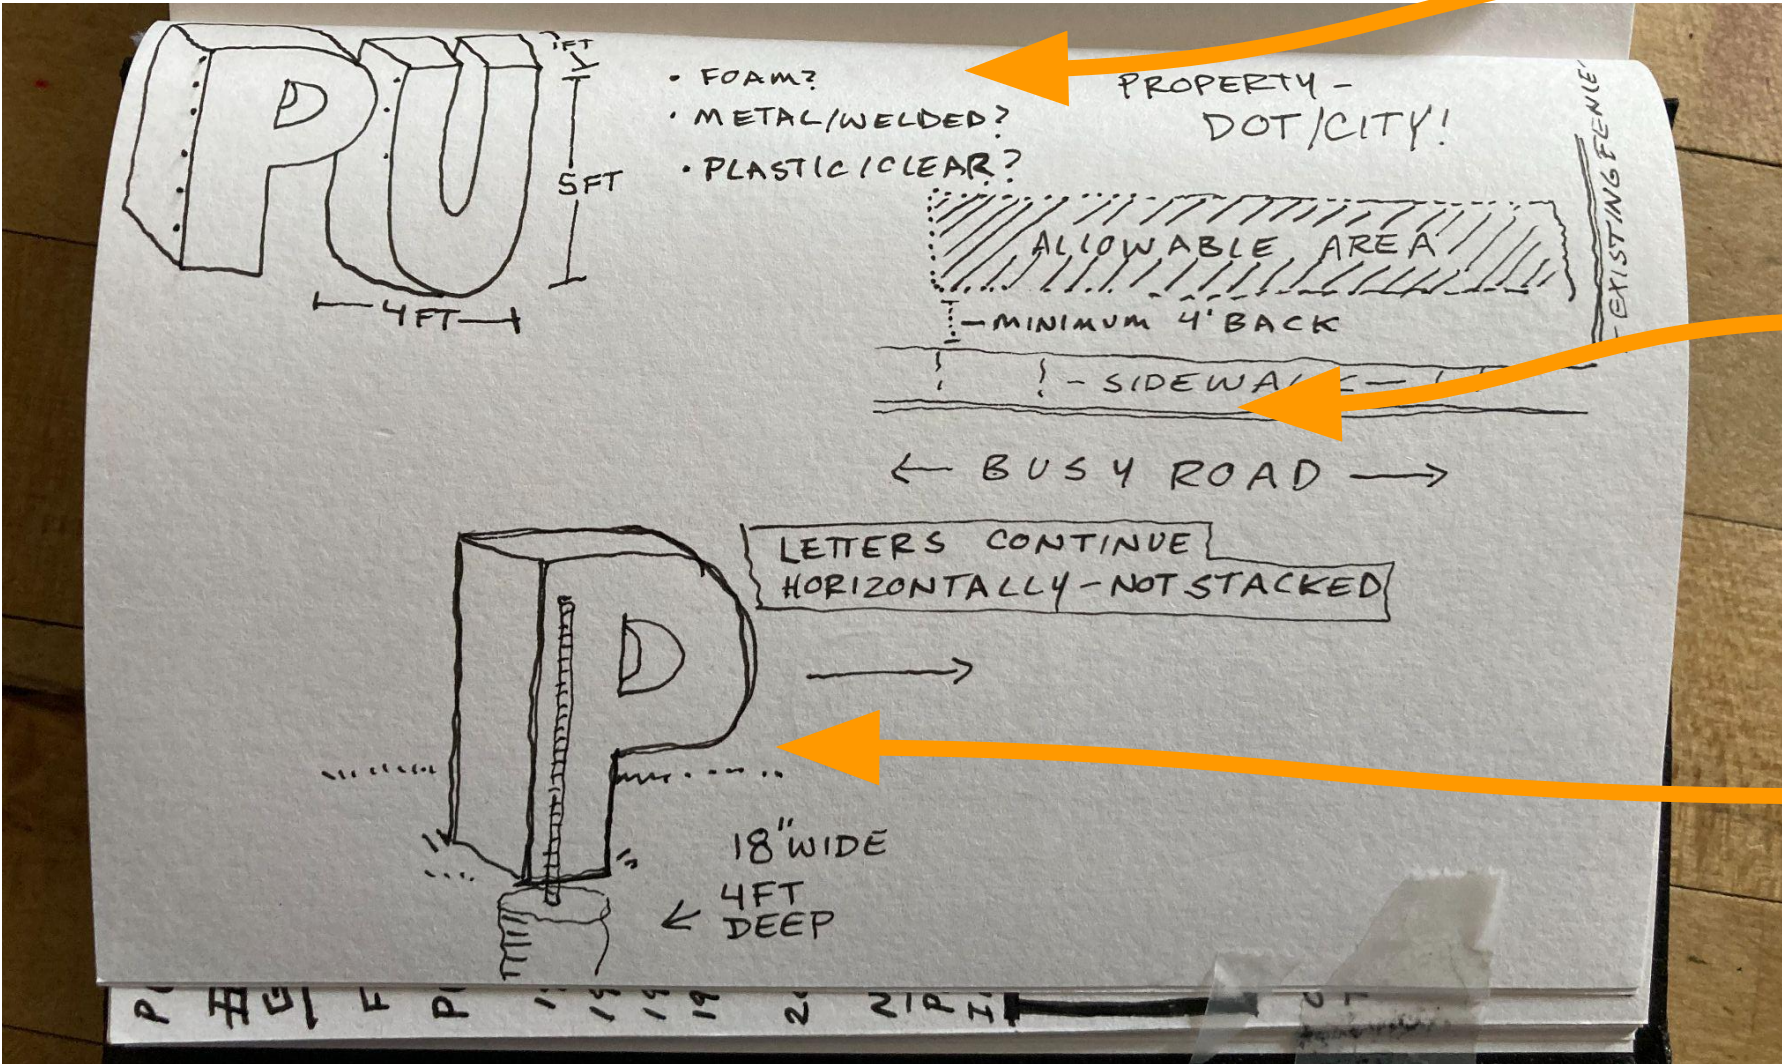 PU
1FT
5FT
4FT
• FOAM?
• METAL/WELDED?
• PLASTIC/CLEAR?
PROPERTY -
DOT/CITY!
ALLOWABLE AREA
- EXISTING FENCE
- MINIMUM 4' BACK
- SIDEWALK -
← BUSY ROAD →
LETTERS CONTINUE
HORIZONTALLY - NOT STACKED
P
18" WIDE
← 4FT
DEEP